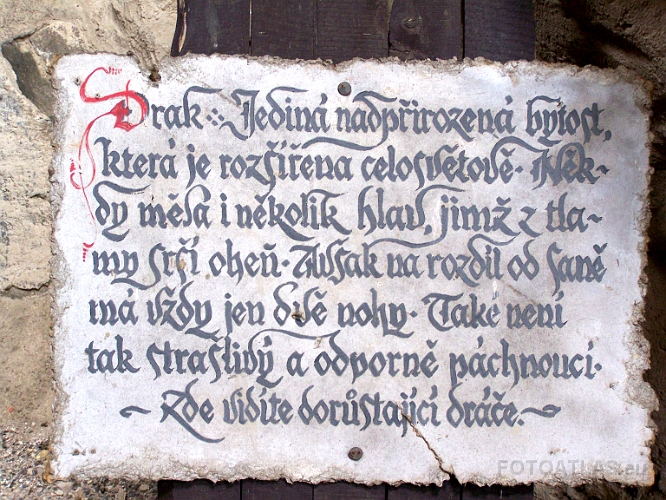 Drak · Jediná nadpřirozená bytost,
která je rozšířena celosvětově · Něk-
dy měla i několik hlav, jimž z tla-
my srčí oheň · Avšak na rozdíl od saně
má vždy jen dvě nohy · Také není
tak strašlivý a odporně páchnoucí ·
~ Zde vidíte dorůstající dráče. ~
FOTOATLAS.eu